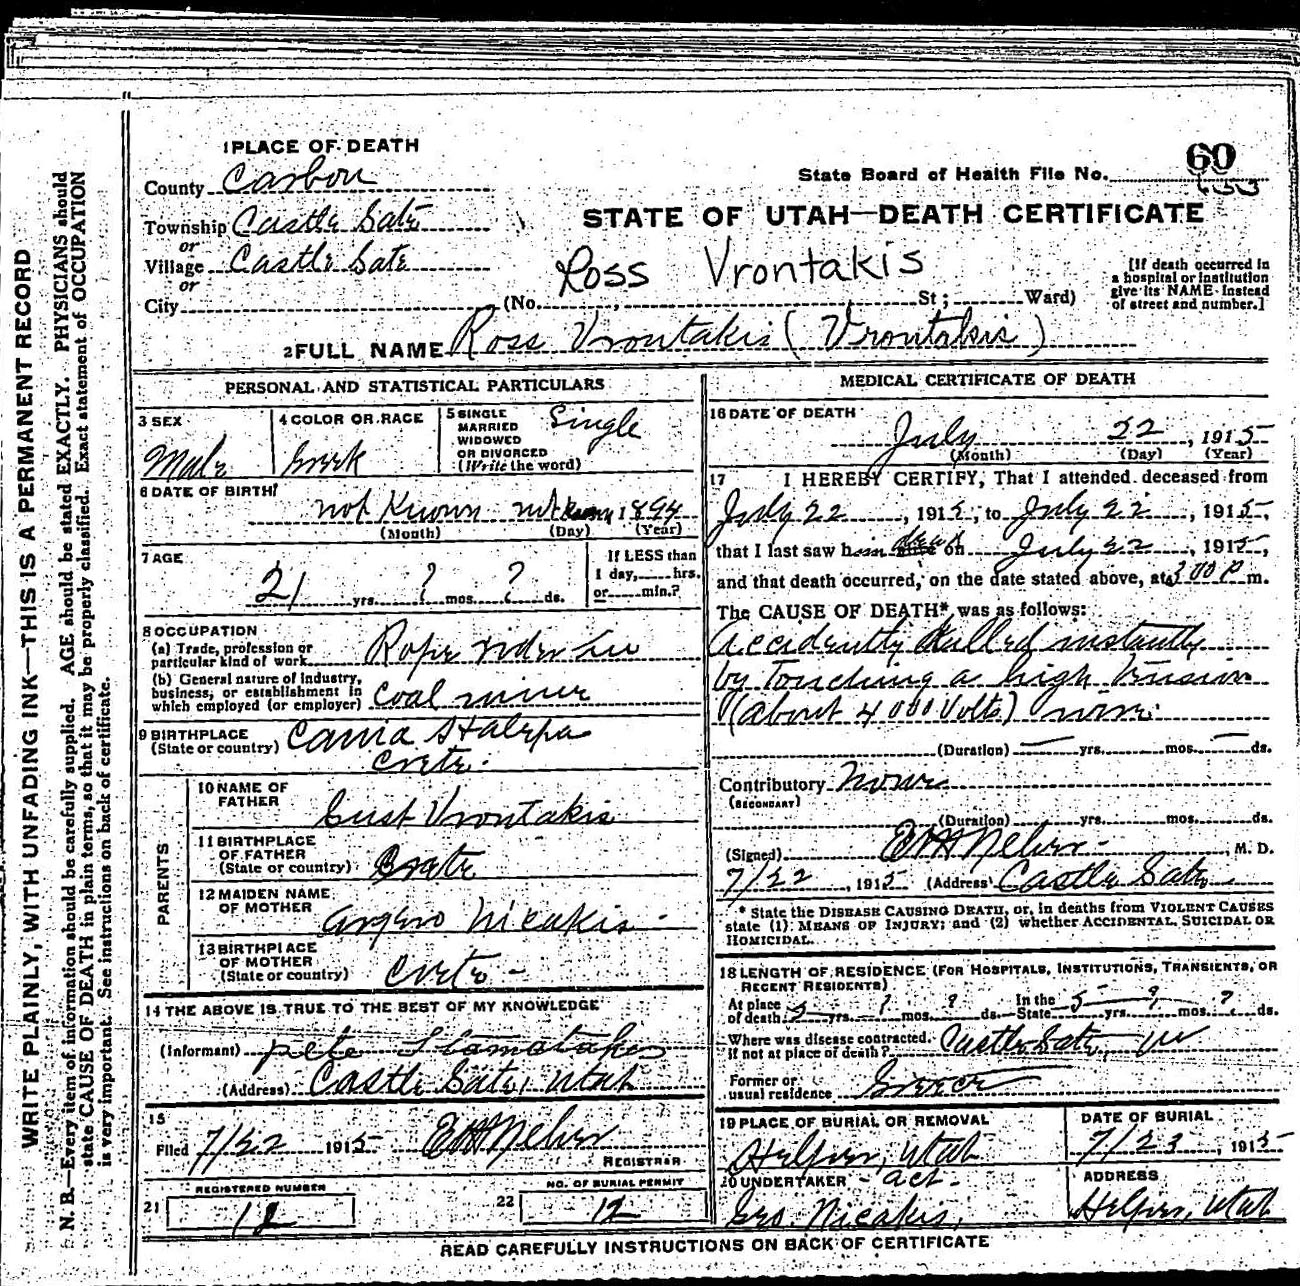 WRITE PLAINLY, WITH UNFADING INK—THIS IS A PERMANENT RECORD
N. B.—Every item of information should be carefully supplied. AGE should be stated EXACTLY. PHYSICIANS should
state CAUSE OF DEATH in plain terms, so that it may be properly classified. Exact statement of OCCUPATION
is very important. See instructions on back of certificate.
1 PLACE OF DEATH
County Carbon
Township Castle Gate
or
Village Castle Gate
or
City
State Board of Health File No. 60
STATE OF UTAH—DEATH CERTIFICATE
Ross Vrontakis
(No. St; Ward)
[If death occurred in
a hospital or institution
give its NAME instead
of street and number.]
2 FULL NAME Ross Vrontakis (Vrontakis)
PERSONAL AND STATISTICAL PARTICULARS
3 SEX
Male
4 COLOR OR RACE
Greek
5 SINGLE
MARRIED
WIDOWED
OR DIVORCED
(Write the word)
Single
6 DATE OF BIRTH
not Known not Known 1894
(Month) (Day) (Year)
7 AGE
21 yrs. ? mos. ? ds.
If LESS than
1 day, hrs.
or min.?
8 OCCUPATION
(a) Trade, profession or
particular kind of work
Rope rider in
(b) General nature of industry,
business, or establishment in
which employed (or employer)
coal mine
9 BIRTHPLACE
(State or country)
Cania Halepa
Crete.
PARENTS
10 NAME OF
FATHER
Gust Vrontakis
11 BIRTHPLACE
OF FATHER
(State or country)
Crete
12 MAIDEN NAME
OF MOTHER
Argero Nicakis
13 BIRTHPLACE
OF MOTHER
(State or country)
Crete -
14 THE ABOVE IS TRUE TO THE BEST OF MY KNOWLEDGE
(Informant) pete Stamatakis
(Address) Castle Gate, Utah
15
Filed 7/22 1915
REGISTRAR
21
REGISTERED NUMBER
12
22
NO. OF BURIAL PERMIT
12
MEDICAL CERTIFICATE OF DEATH
16 DATE OF DEATH
July 22, 1915
(Month) (Day) (Year)
17 I HEREBY CERTIFY, That I attended deceased from
July 22, 1915, to July 22, 1915,
that I last saw him dead on July 22, 1915,
and that death occurred, on the date stated above, at 3 00 P m.
The CAUSE OF DEATH* was as follows:
Accidently Killed instantly
by Touching a high Tension
(about 4000 Volts) wire.
(Duration) yrs. mos. ds.
Contributory None
(SECONDARY)
(Duration) yrs. mos. ds.
(Signed) M. D.
7/22, 1915 (Address) Castle Gate
* State the DISEASE CAUSING DEATH, or, in deaths from VIOLENT CAUSES
state (1) MEANS OF INJURY; and (2) whether ACCIDENTAL, SUICIDAL OR
HOMICIDAL.
18 LENGTH OF RESIDENCE (FOR HOSPITALS, INSTITUTIONS, TRANSIENTS, OR
RECENT RESIDENTS)
At place
of death 5 yrs. ? mos. ? ds.
In the
State 5 yrs. ? mos. ? ds.
Where was disease contracted,
if not at place of death?
Castle Gate,
Former or
usual residence Greece
19 PLACE OF BURIAL OR REMOVAL
Helper, Utah
DATE OF BURIAL
7/23, 1915
20 UNDERTAKER - act.
Geo. Nicakis,
ADDRESS
Helper, Utah
READ CAREFULLY INSTRUCTIONS ON BACK OF CERTIFICATE